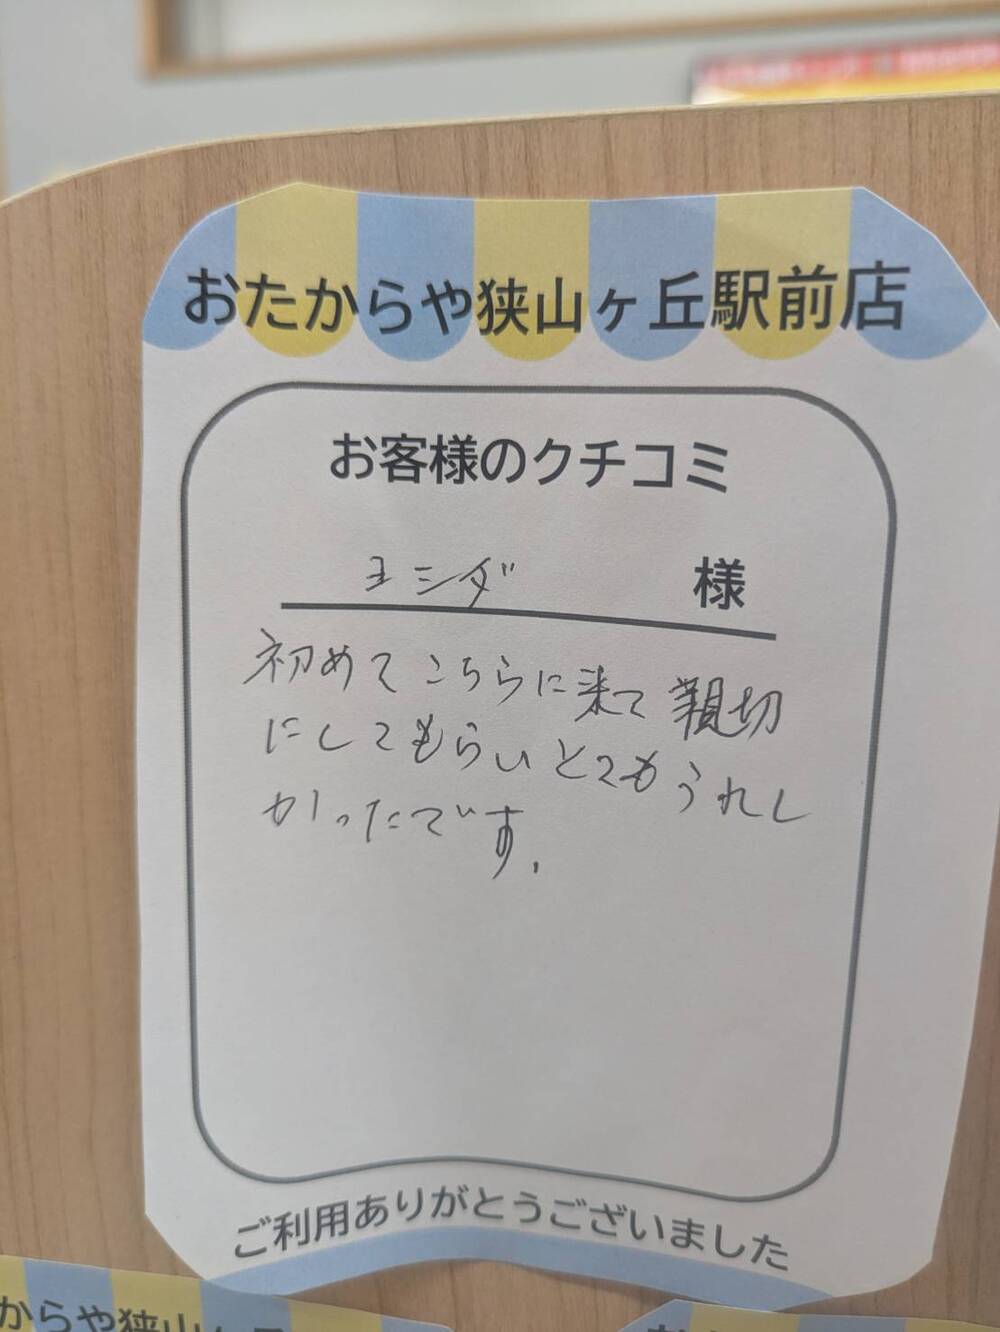 おたからや狭山ヶ丘駅前店
お客様のクチコミ
ヨシダ 様
初めてこちらに来て親切
にしてもらいとてもうれし
かったです.
ご利用ありがとうございました
からや狭山ヶ